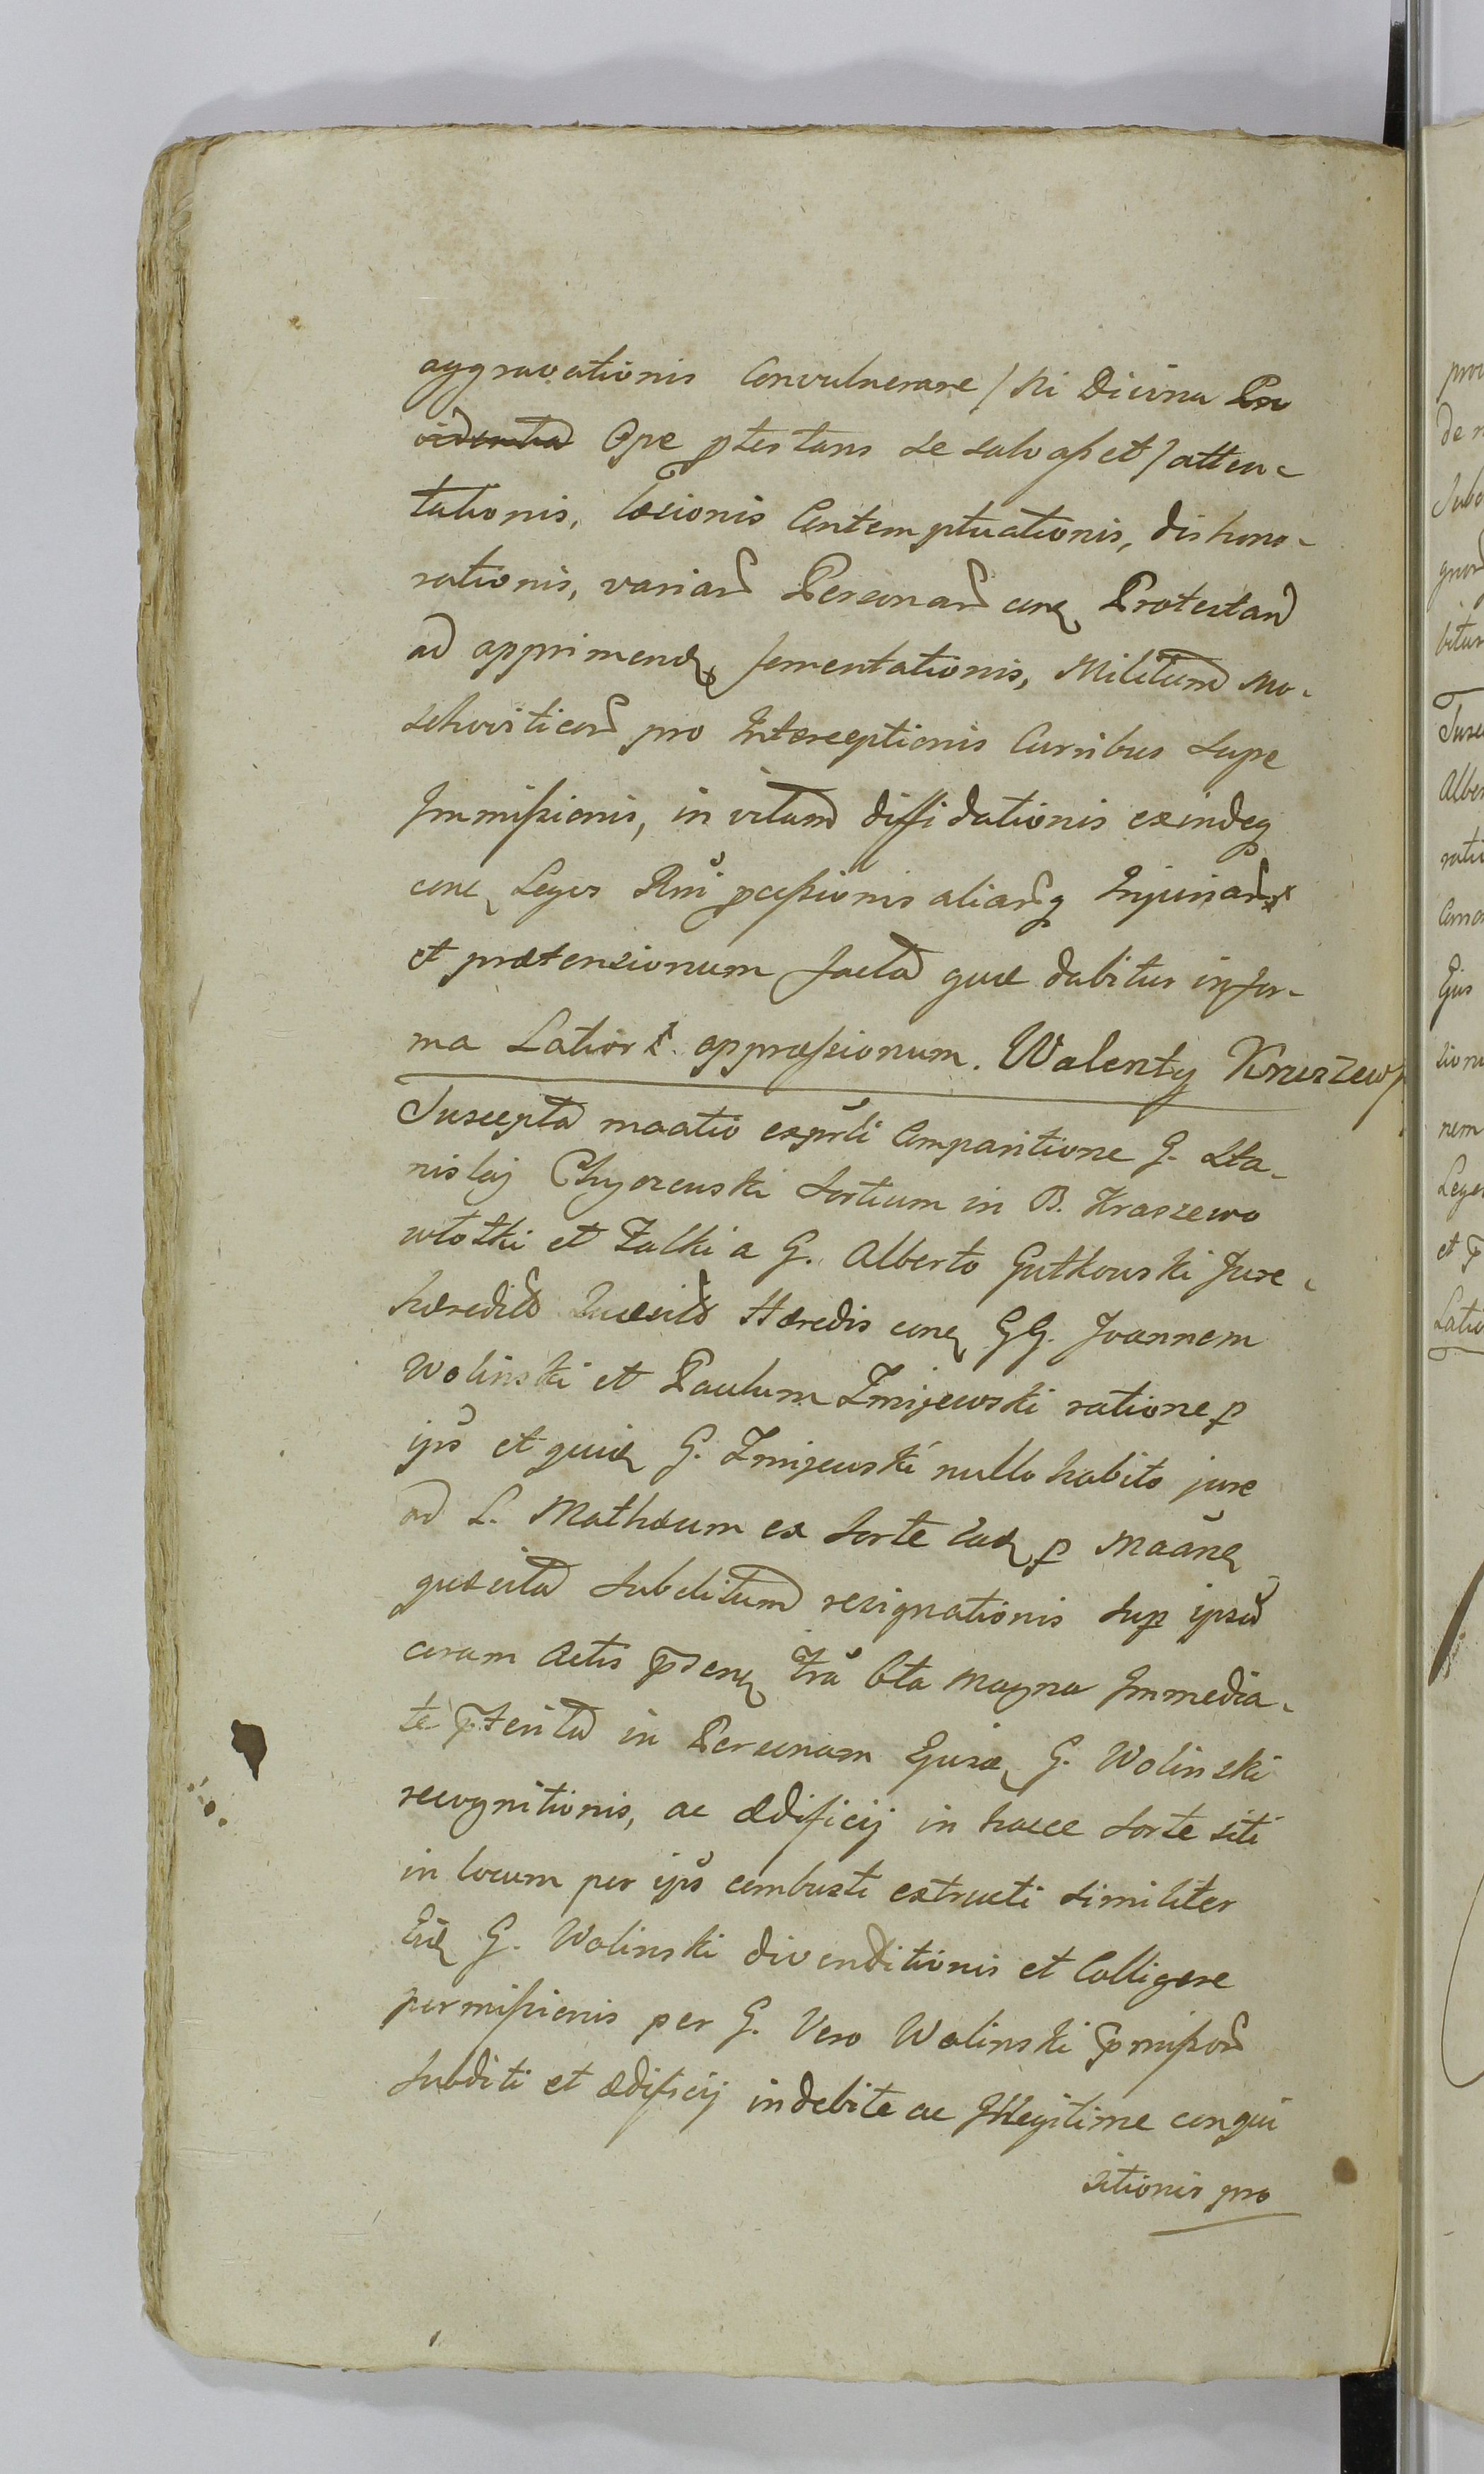 aggravationis Convulnerare / Ni Divina Pro
videntia Ope ptestans se salvaßet / atten-
tationis, læsionis Contemptuationis, dishono-
rationis, variar Personar conq Protestan
ad opprimend fomentationis, Militum Mo-
schoviticor pro Interceptionis Curribus supe
Immißionis, in vitam diffidationis exindeq
conq Leges Rni pceßionis aliarq Injuriar
et prætensionum facta quæ dabitur in for-
ma Latior oppreßionum. Walenty Kruszew
Suscepta maatio exprli Comparitione G. Sta-
nislaj Chyczewski Sortium in B. Kraszewo
włotki et Falki a G. Alberto Gutkowski Jure
hæredit Quæsit Hæredis conq GG. Joannem
Wolinski et Paulum Zmijewski ratione p
ips et quid G. Zmijewski nullo habito jure
ad L. Mathæum ex Sorte ead p Maanq
quæsita Subditum resignationis sup ipsu
coram Actis pdenq Tra Cta Magna Immedia-
te pterita in Personam Ejusd G. Wolinski
recognitionis, ac ædificij in hacce Sorte siti
in locum per ips combusti extructi similiter
Eid G. Wolinski divenditionis et Colligere
permißionis per G. Vero Wolinski pmißor
Subditi et ædificij indebite ac Illegitime conqui
sitionis pro